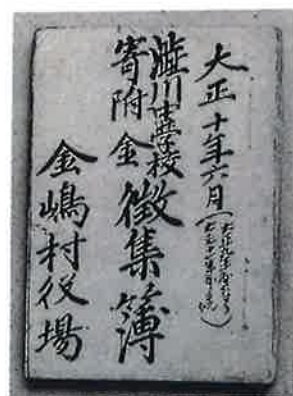 大正十年六月
澁川中学校
寄附金徴集簿
金嶋村役場